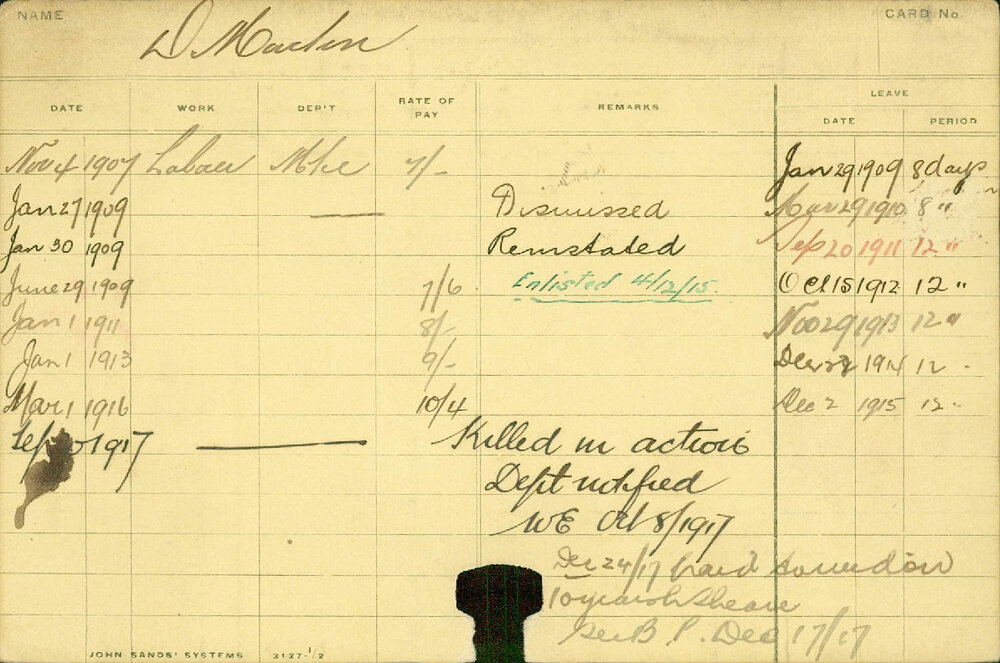 NAME D Martin CARD No.
DATE WORK DEP'T RATE OF PAY REMARKS LEAVE
DATE PERIOD
Nov 4 1907 Labour Mtce 7/- Jan 29 1909 8 days
Jan 27 1909 Dismissed 29 1910 8 "
Jan 30 1909 Reinstated Sep 20 1911 12 "
June 29 1909 7/6 Enlisted 4/12/15 Oct 15 1912 12 "
Jan 1 1911 8/- Nov 29 1913 12 "
Jan 1 1913 9/- Dec 1914 12 "
Mar 1 1916 10/4 Dec 2 1915 12 "
Sep 1917 Killed in action
Dept notified
WE Oct 8/1917
Dec 24/17
Dec 17/17
JOHN SANDS' SYSTEMS 3127-1/2